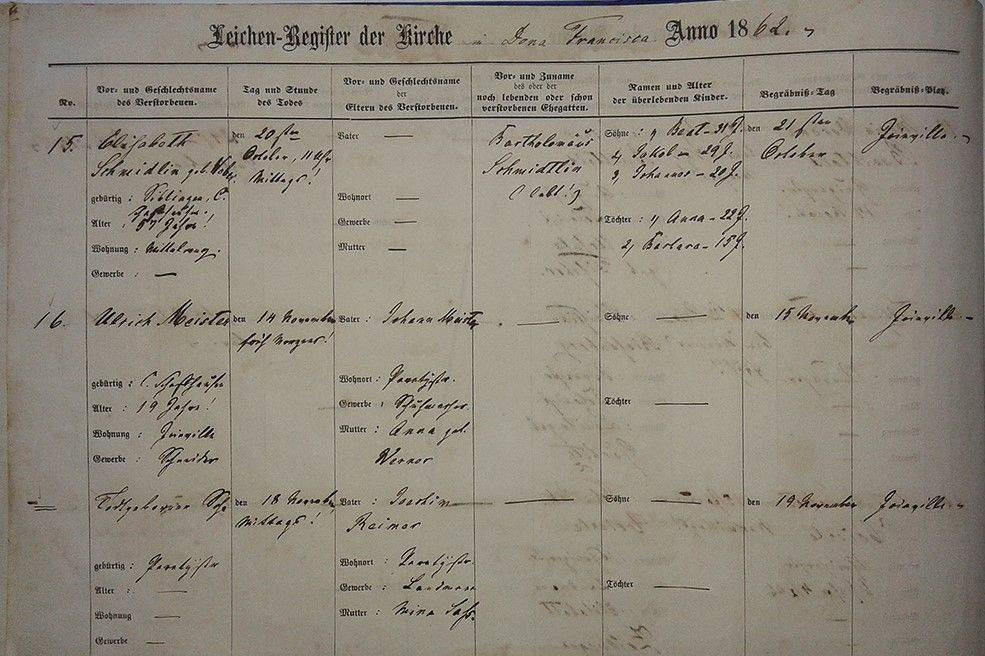 Leichen-Register der Kirche in Dona Francisca Anno 1862.
No.
Vor- und Geschlechtsname
des Verstorbenen.
Tag und Stunde
des Todes
Vor- und Geschlechtsname
der
Eltern des Verstorbenen.
Vor- und Zuname
des oder der
noch lebenden oder schon
verstorbenen Ehegatten.
Namen und Alter
der überlebenden Kinder.
Begräbniß-Tag
Begräbniß-Platz.
15.
Elisabeth
Schmidlin geb.
gebürtig : Siblingen, C.
Schaffhausen.
Alter : 57 Jahre!
Wohnung : Mittelweg.
Gewerbe : —
den 20sten
October, 11 Uhr
Mittags!
Vater —
Wohnort —
Gewerbe —
Mutter —
Bartholomäus
Schmidtlin
(lebt!)
Söhne : 1, Beat – 31 J.
2, Jakob – 29 J.
3, Johannes – 20 J.
Töchter : 1, Anna – 22 J.
2, Barbara – 15 J.
den 21sten
October
Joinville
16.
Ulrich Meister
gebürtig : C. Schaffhausen
Alter : 19 Jahre!
Wohnung : Joinville
Gewerbe : Schneider
den 14 November
früh Morgens!
Vater : Johann Meister
Wohnort :
Gewerbe : Schuhmacher.
Mutter : Anna geb.
Werner
—
Söhne —
Töchter —
den 15 November
Joinville
Todtgeborner
gebürtig :
Alter : —
Wohnung —
Gewerbe —
den 18 November
Mittags!
Vater : Joachim
Reimer
Wohnort :
Gewerbe : Landmann
Mutter : Mina
—
Söhne —
Töchter —
den 19 November
Joinville